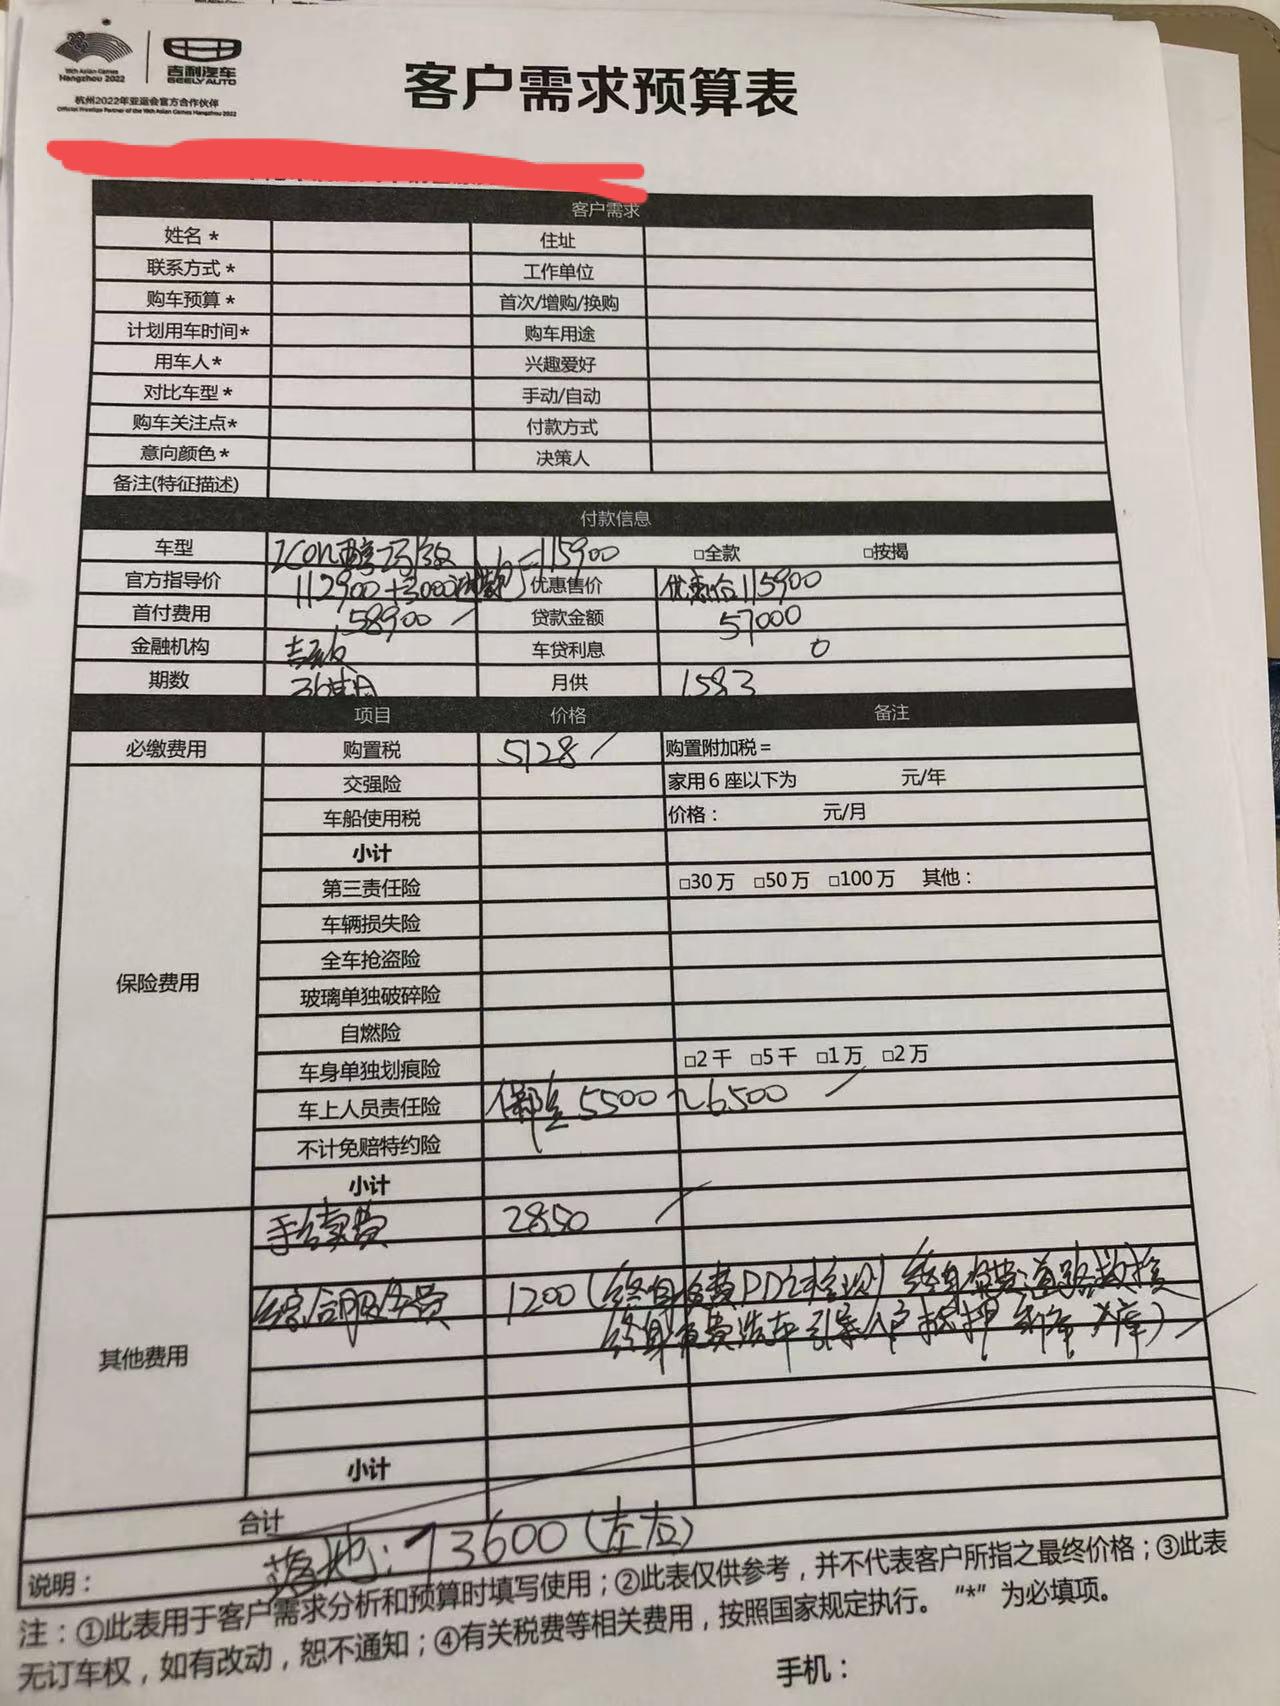 19th Asian Games
Hangzhou 2022
吉利汽车
GEELY AUTO
杭州2022年亚运会官方合作伙伴
Official Prestige Partner of the 19th Asian Games Hangzhou 2022
客户需求预算表
客户需求
姓名* 住址
联系方式* 工作单位
购车预算* 首次/增购/换购
计划用车时间* 购车用途
用车人* 兴趣爱好
对比车型* 手动/自动
购车关注点* 付款方式
意向颜色* 决策人
备注(特征描述)
付款信息
车型 ICON =115900 □全款 □按揭
官方指导价 112900+3000 优惠售价 优惠后115900
首付费用 58900 贷款金额 57000
金融机构 车贷利息 0
期数 36 月供 1583
项目 价格 备注
必缴费用 购置税 5128 购置附加税=
保险费用
交强险 家用6座以下为 元/年
车船使用税 价格： 元/月
小计
第三责任险 □30万 □50万 □100万 其他：
车辆损失险
全车抢盗险
玻璃单独破碎险
自燃险
车身单独划痕险 □2千 □5千 □1万 □2万
车上人员责任险 5500~6500
不计免赔特约险
小计
其他费用
手续费 2850
综合服务费 1200(终身免费PDI检测 终身免费道路救援
终身免费洗车 引导入户 抵押
小计
合计
说明： 落地：73600(左右)
注：①此表用于客户需求分析和预算时填写使用；②此表仅供参考，并不代表客户所指之最终价格；③此表
无订车权，如有改动，恕不通知；④有关税费等相关费用，按照国家规定执行。“*”为必填项。
手机：